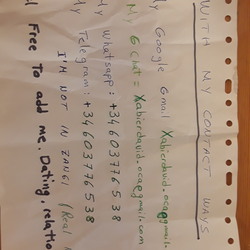 WITH MY CONTACT WAYS.
My Google Gmail Xabierdavid.oca@gmail.
My G Chat = Xabierdavid.oca@gmail.com
My Whatsapp: +34603776538
My Telegram: +34603776538
I'M NOT IN ZANGI (Real
Free To add me. Dating, relatio